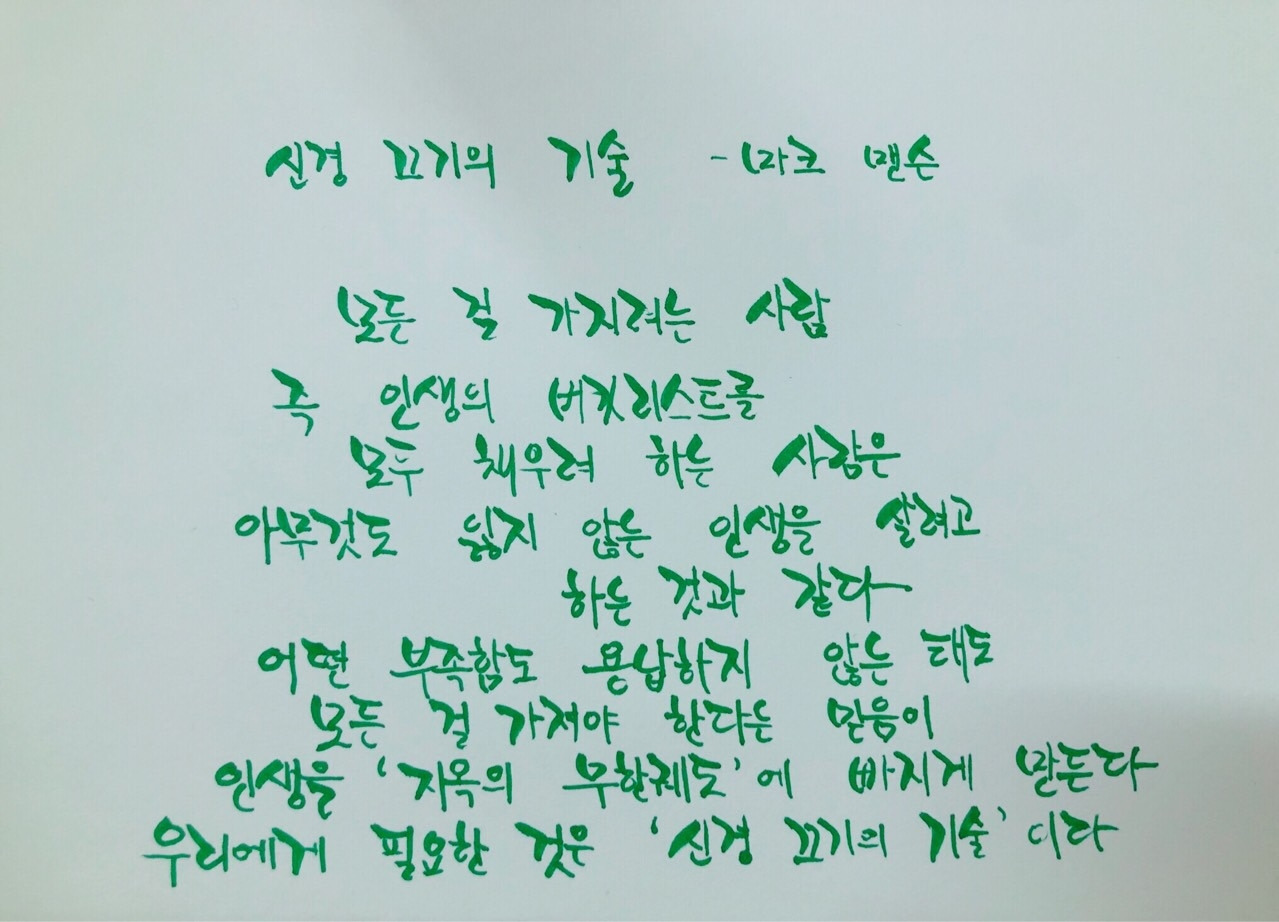 신경 끄기의 기술 - 마크 맨슨
모든 걸 가지려는 사람
즉 인생의 버킷리스트를
모두 채우려 하는 사람은
아무것도 잃지 않는 인생을 살려고
하는 것과 같다
어떤 부족함도 용납하지 않는 태도
모든 걸 가져야 한다는 믿음이
인생을 '지옥의 무한궤도'에 빠지게 만든다
우리에게 필요한 것은 '신경 끄기의 기술'이다